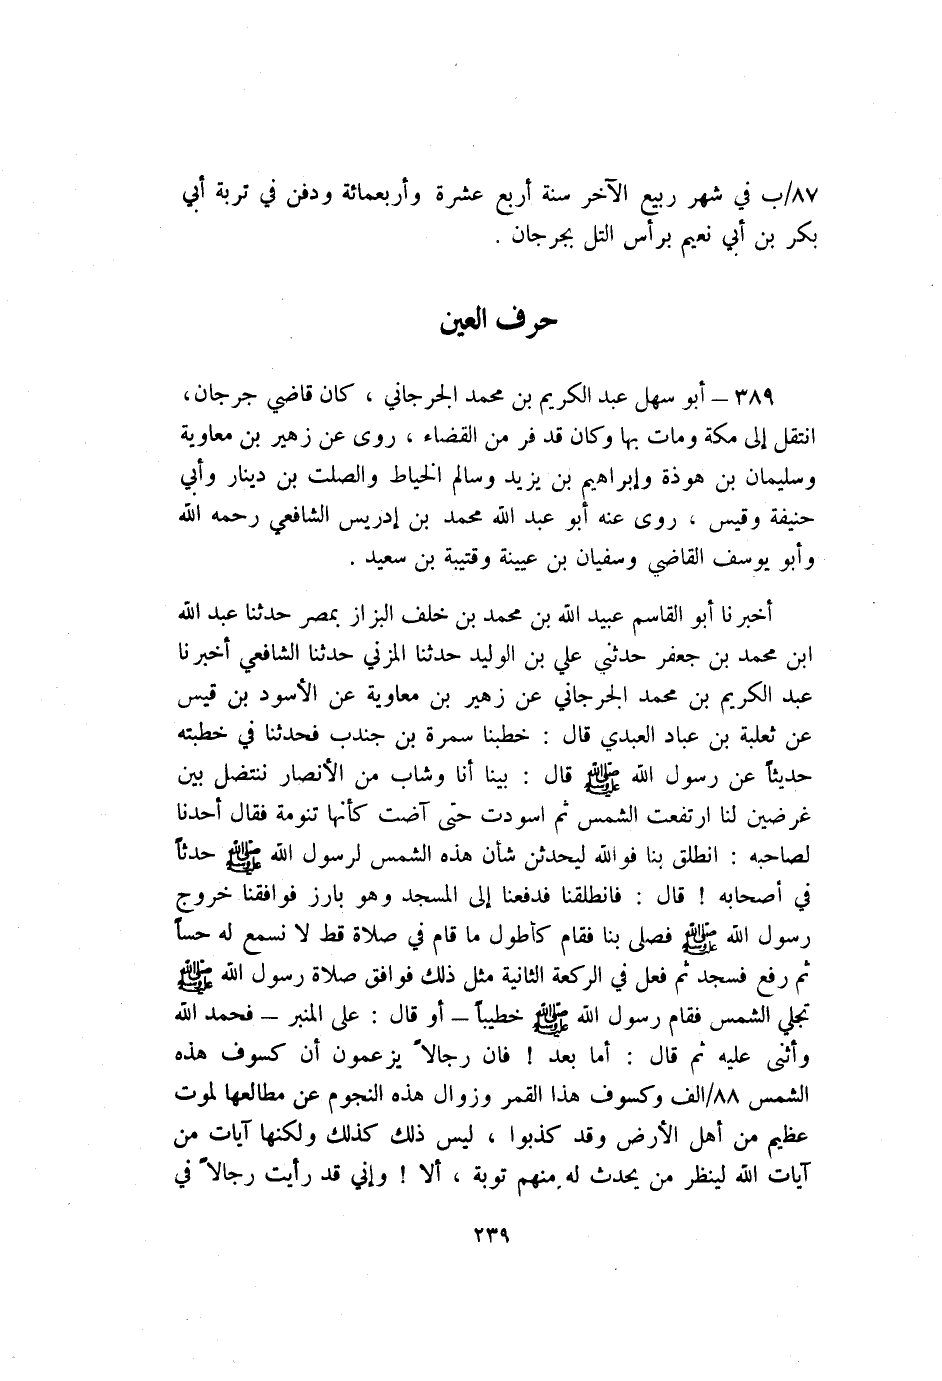 ٨٧/ب في شهر ربيع الآخر سنة أربع عشرة وأربعمائة ودفن في تربة أبي
بكر بن أبي نعيم برأس التل بجرجان .
حرف العين
٣٨٩ – أبو سهل عبد الكريم بن محمد الجرجاني ، كان قاضي جرجان،
انتقل إلى مكة ومات بها وكان قد فر من القضاء ، روى عن زهير بن معاوية
وسليمان بن هوذة وإبراهيم بن يزيد وسالم الخياط والصلت بن دينار وأبي
حنيفة وقيس ، روى عنه أبو عبد الله محمد بن إدريس الشافعي رحمه الله
وأبو يوسف القاضي وسفيان بن عيينة وقتيبة بن سعيد .
أخبرنا أبو القاسم عبيد الله بن محمد بن خلف البزاز بمصر حدثنا عبد الله
ابن محمد بن جعفر حدثني علي بن الوليد حدثنا المزني حدثنا الشافعي أخبرنا
عبد الكريم بن محمد الجرجاني عن زهير بن معاوية عن الأسود بن قيس
عن ثعلبة بن عباد العبدي قال : خطبنا سمرة بن جندب فحدثنا في خطبته
حديثاً عن رسول الله ﷺ قال : بينا أنا وشاب من الأنصار ننتضل بين
غرضين لنا ارتفعت الشمس ثم اسودت حتى آضت كأنها تنومة فقال أحدنا
لصاحبه : انطلق بنا فوالله ليحدثن شأن هذه الشمس لرسول الله ﷺ حدثاً
في أصحابه ! قال : فانطلقنا فدفعنا إلى المسجد وهو بارز فوافقنا خروج
رسول الله ﷺ فصلى بنا فقام كأطول ما قام في صلاة قط لا نسمع له حساً
ثم رفع فسجد ثم فعل في الركعة الثانية مثل ذلك فوافق صلاة رسول الله ﷺ
تجلي الشمس فقام رسول الله ﷺ خطيباً – أو قال : على المنبر – فحمد الله
وأثنى عليه ثم قال : أما بعد ! فان رجالاً يزعمون أن كسوف هذه
الشمس ٨٨/الف وكسوف هذا القمر وزوال هذه النجوم عن مطالعها لموت
عظيم من أهل الأرض وقد كذبوا ، ليس ذلك كذلك ولكنها آيات من
آيات الله لينظر من يحدث له منهم توبة ، ألا ! وإني قد رأيت رجالاً في
٢٣٩